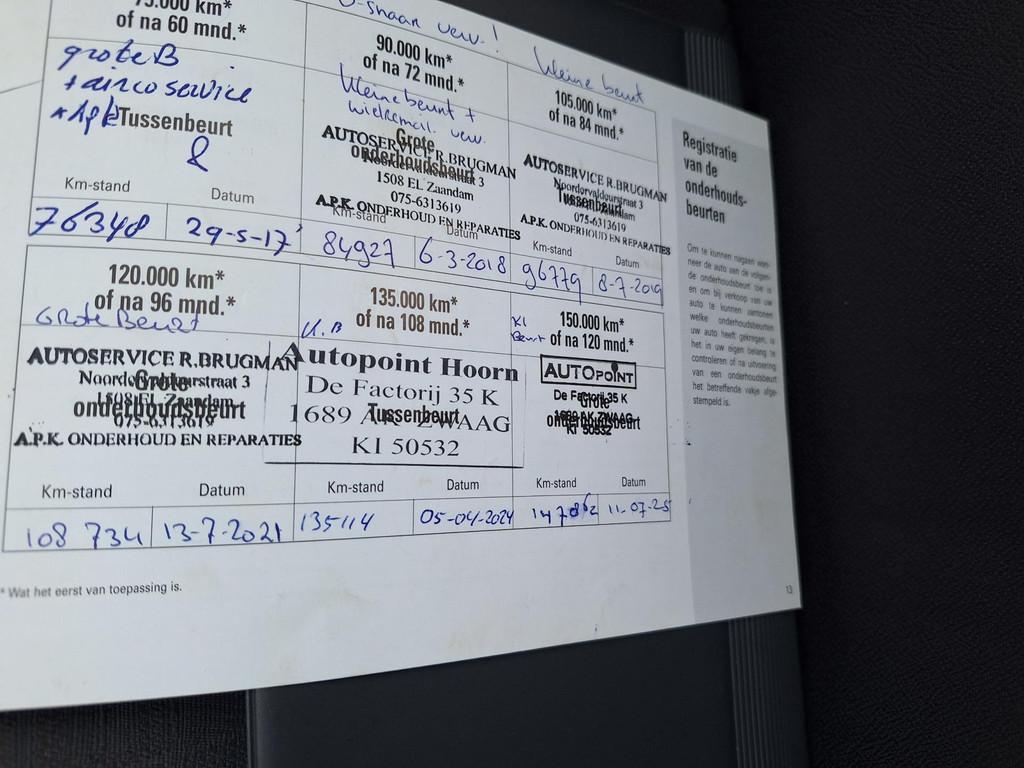 75.000 km*
of na 60 mnd.*
grote B
+ airco service
+ Apk
Tussenbeurt
Km-stand Datum
76348 29-5-17
V-snaar verv.!
90.000 km*
of na 72 mnd.*
kleine beurt +
wielremcil. verv.
Grote
onderhoudsbeurt
AUTOSERVICE R.BRUGMAN
Noordervaldeurstraat 3
1508 EL Zaandam
075-6313619
A.P.K. ONDERHOUD EN REPARATIES
Km-stand Datum
84927 6-3-2018
kleine beurt
105.000 km*
of na 84 mnd.*
AUTOSERVICE R.BRUGMAN
Tussenbeurt
075-6313619
A.P.K. ONDERHOUD EN REPARATIES
Km-stand Datum
96779 8-7-2019
120.000 km*
of na 96 mnd.*
Grote Beurt
AUTOSERVICE R.BRUGMAN
Grote
onderhoudsbeurt
1508 EL Zaandam
075-6313619
A.P.K. ONDERHOUD EN REPARATIES
Km-stand Datum
108 734 13-7-2021
135.000 km*
of na 108 mnd.*
K.B
Autopoint Hoorn
De Factorij 35 K
1689 AK ZWAAG
Tussenbeurt
KI 50532
Km-stand Datum
135114 05-04-2024
150.000 km*
of na 120 mnd.*
Kl
Beurt
AUTOPOINT
De Factorij 35 K
1689 AK ZWAAG
Grote
onderhoudsbeurt
KI 50532
Km-stand Datum
147862 11-07-25
* Wat het eerst van toepassing is.
Registratie
van de
onderhouds-
beurten
Om te kunnen nagaan wan-
neer de auto aan de volgen-
de onderhoudsbeurt toe is
en om bij verkoop van uw
auto te kunnen aantonen
welke onderhoudsbeurten
uw auto heeft gekregen, is
het in uw eigen belang te
controleren of na uitvoering
van een onderhoudsbeurt
het betreffende vakje afge-
stempeld is.
13